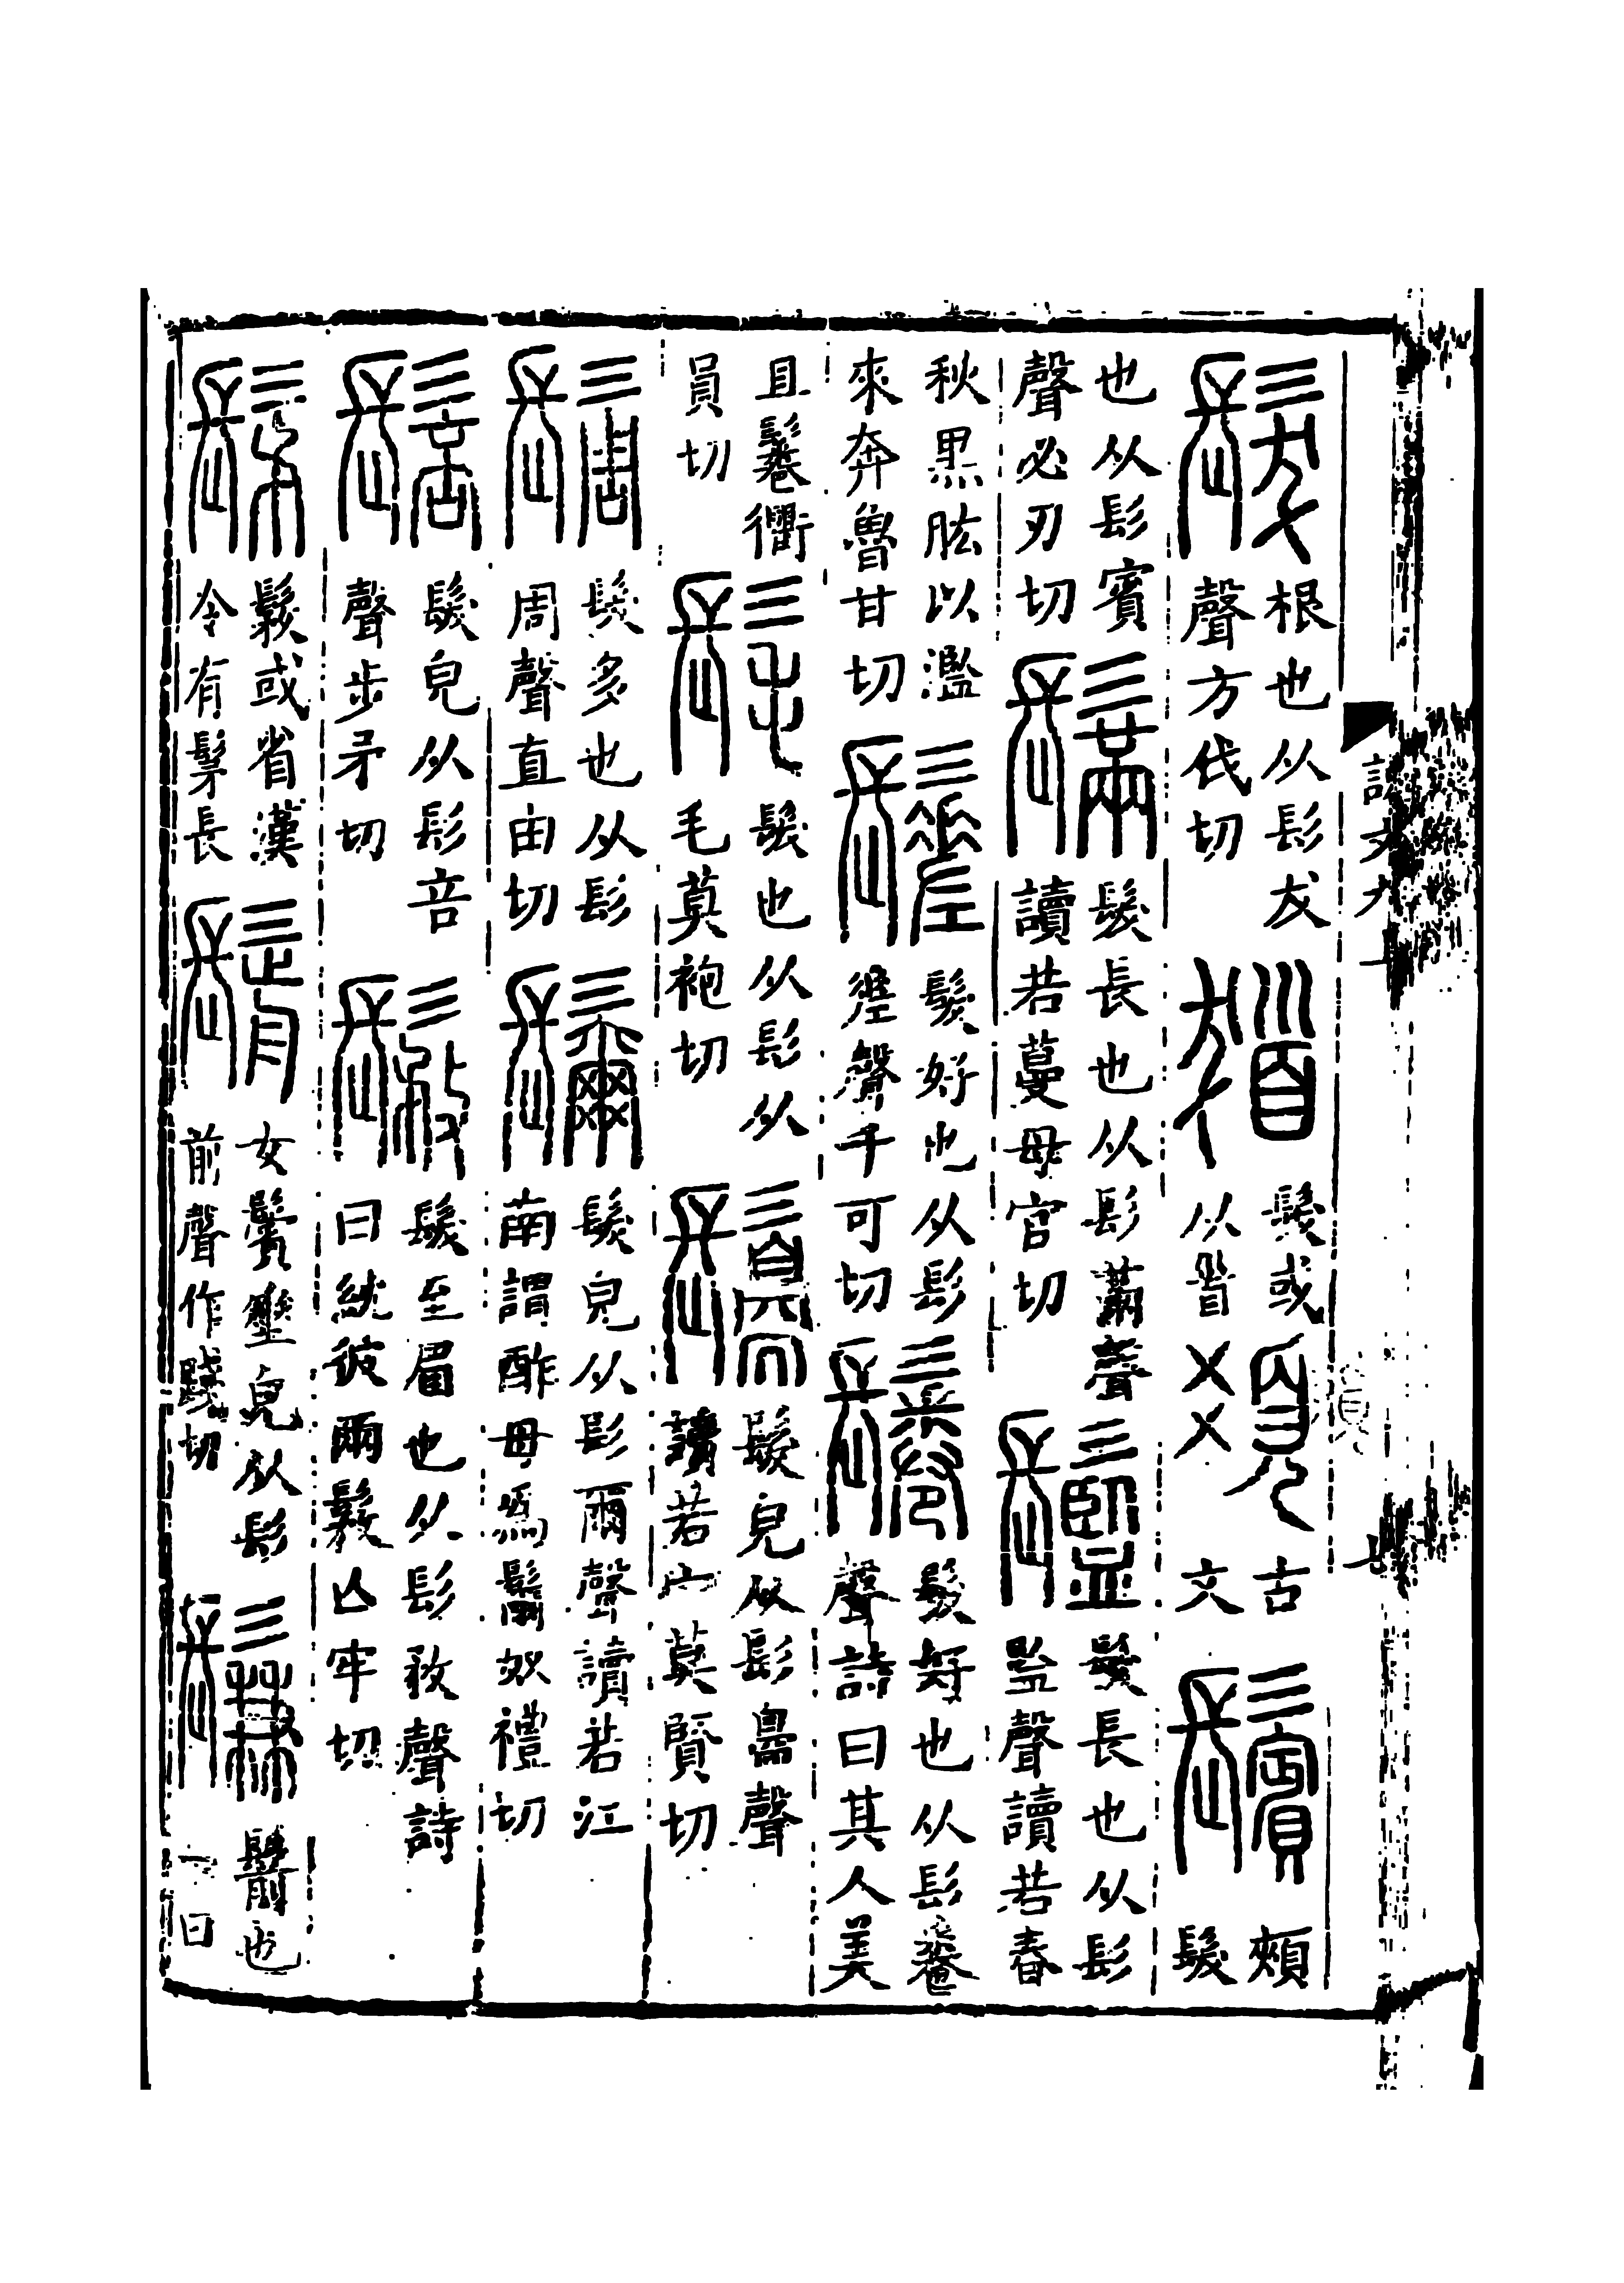 髮 根也从髟犮聲方伐切 髮或从𩠐 古文 鬢 頰髮
也从髟賓聲必刃切 鬗 髮長也从髟㒼聲讀若蔓母官切 髮長也从髟監聲讀若春
秋黒肱以濫來奔魯甘切 髮好也从髟差聲千可切 鬈 髮好也从髟卷聲詩曰其人美
且鬈衢員切 髦 髮也从髟从毛莫袍切 髮皃从髟臱聲讀若宀莫賢切
髮多也从髟周聲直由切 髮皃从髟爾聲讀若江南謂酢母爲 奴禮切
髮皃从髟音聲步矛切 髮至眉也从髟敄聲詩曰紞彼兩 亾牢切
髳 或省漢令有髳長 鬋 女鬢垂皃从髟前聲作踐切 鬑 鬋也一曰
說文九上
七